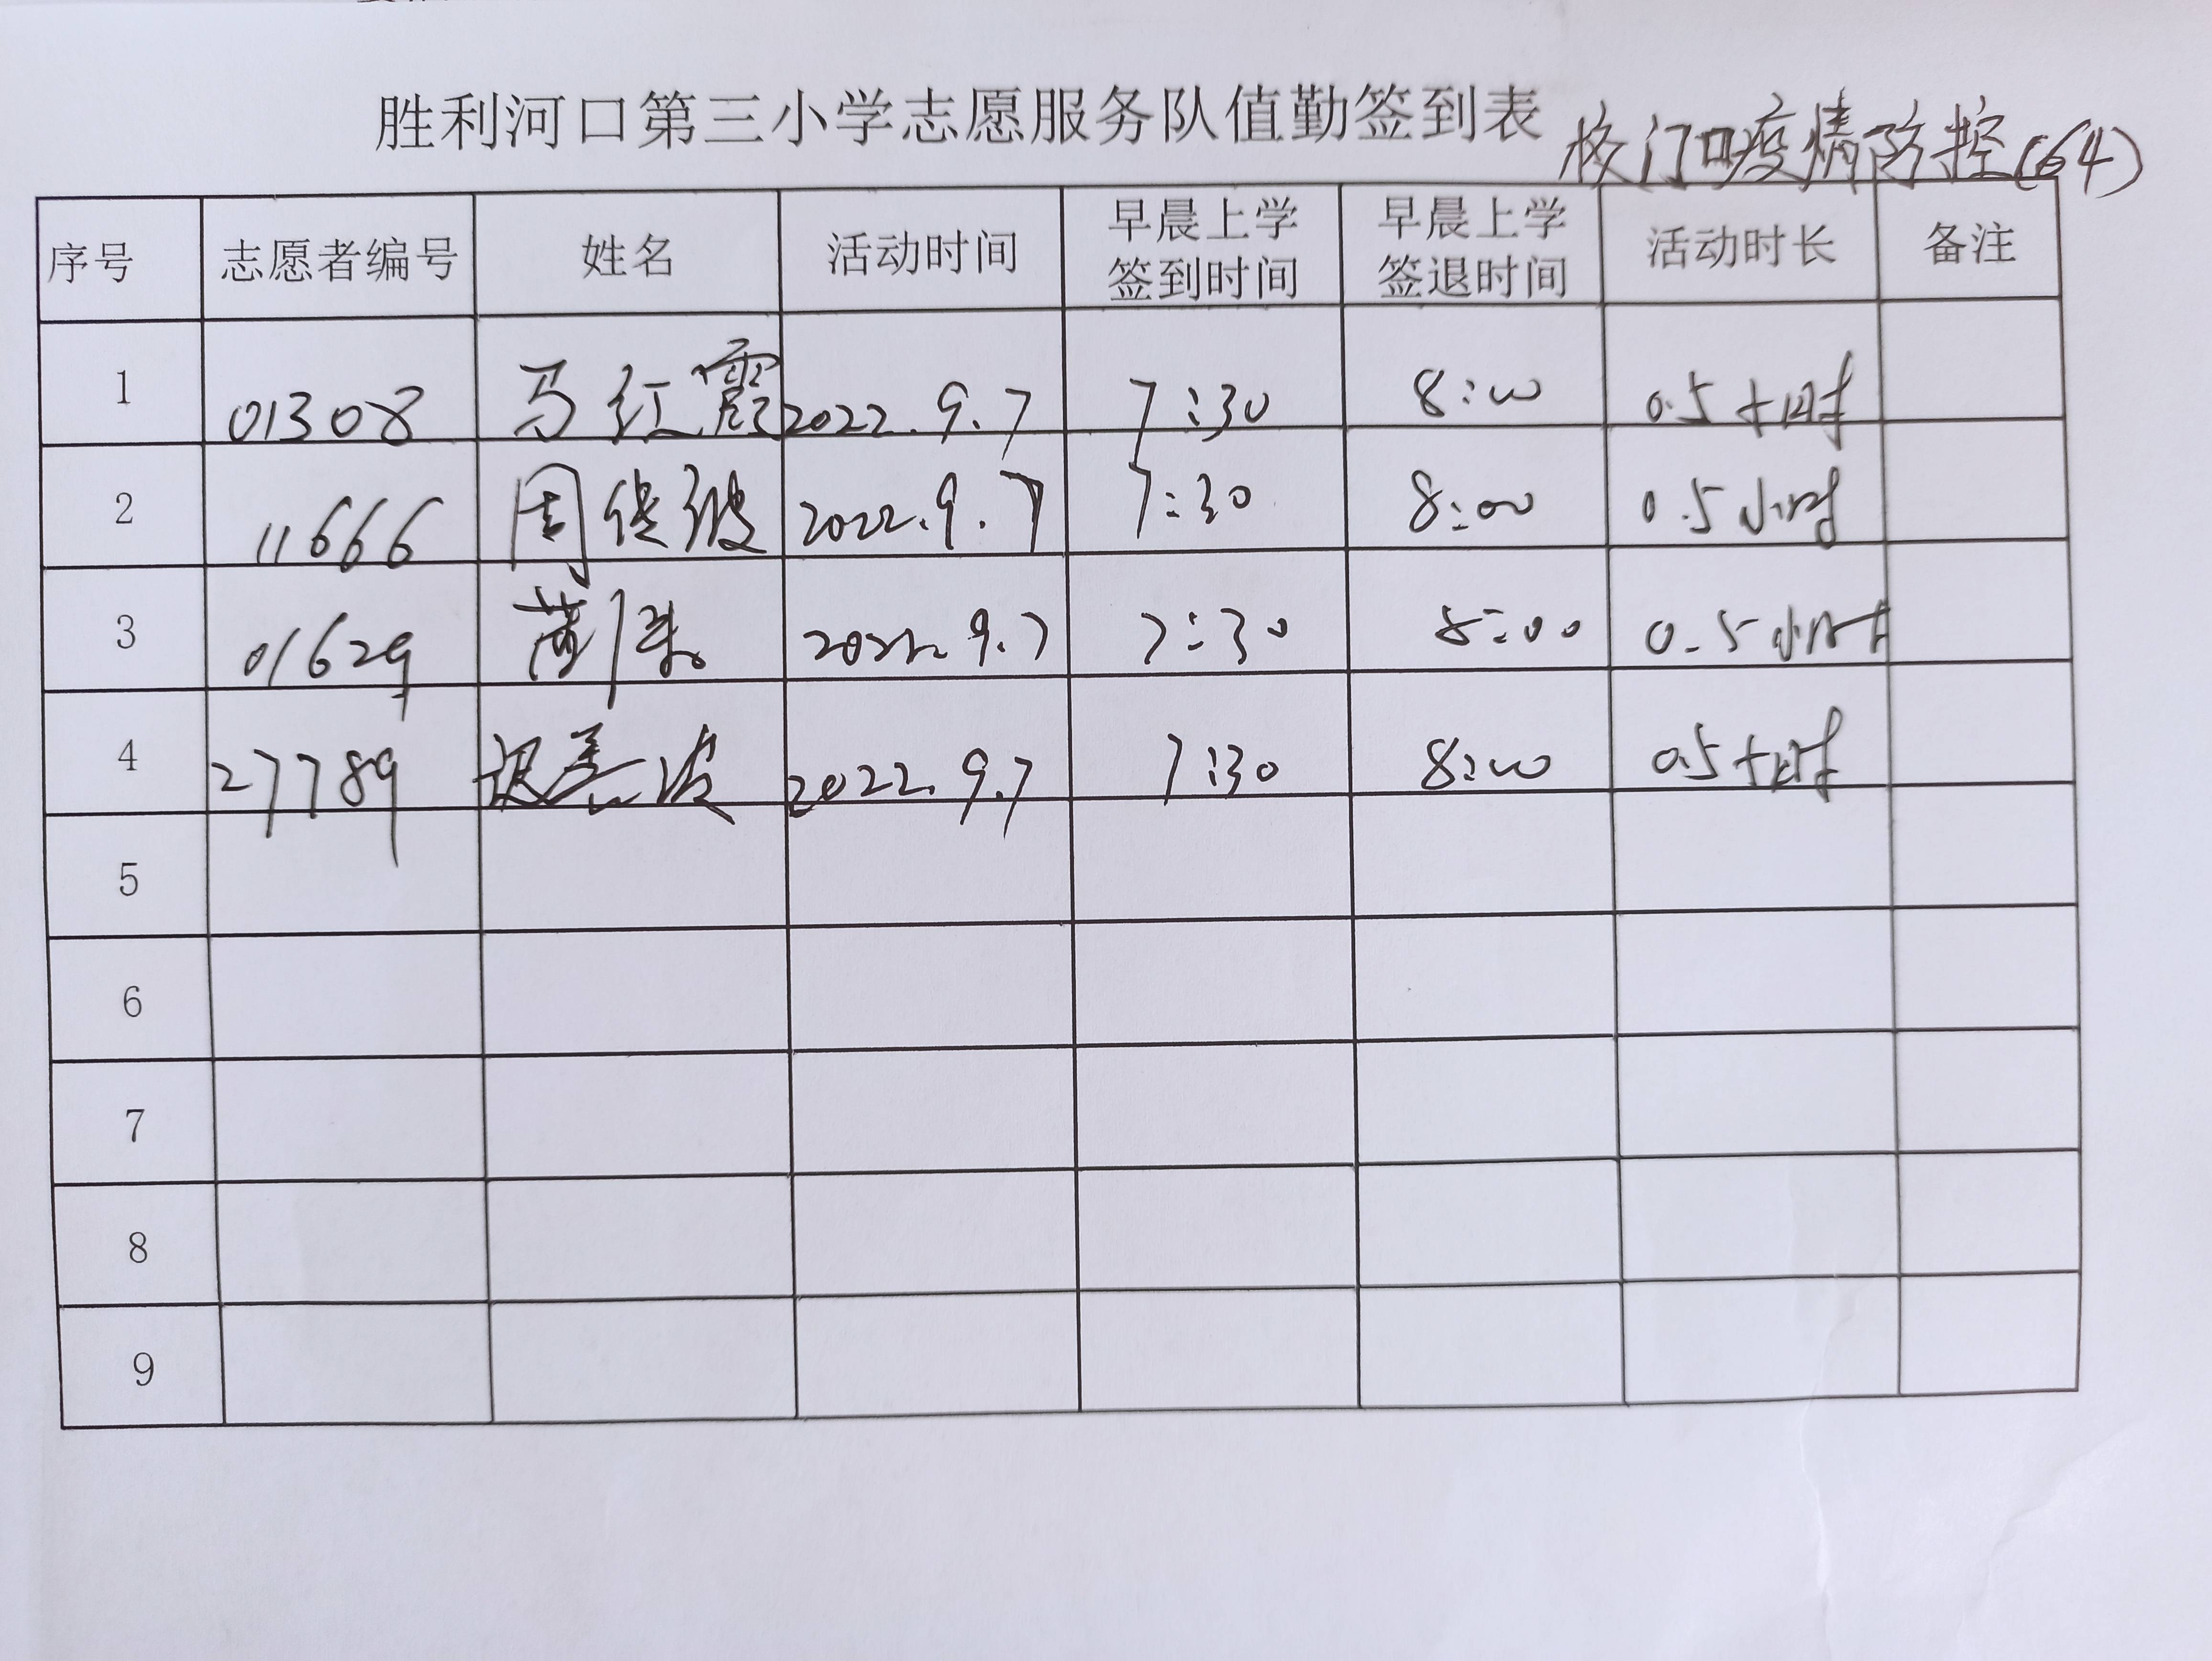 胜利河口第三小学志愿服务队值勤签到表 校门口疫情防控(64)
序号 志愿者编号 姓名 活动时间 早晨上学签到时间 早晨上学签退时间 活动时长 备注
1 01308 马红霞 2022.9.7 7:30 8:00 0.5小时
2 11666 周 2022.9.7 7:30 8:00 0.5小时
3 01629 2022.9.7 7:30 8:00 0.5小时
4 27789 2022.9.7 7:30 8:00 0.5小时
5
6
7
8
9